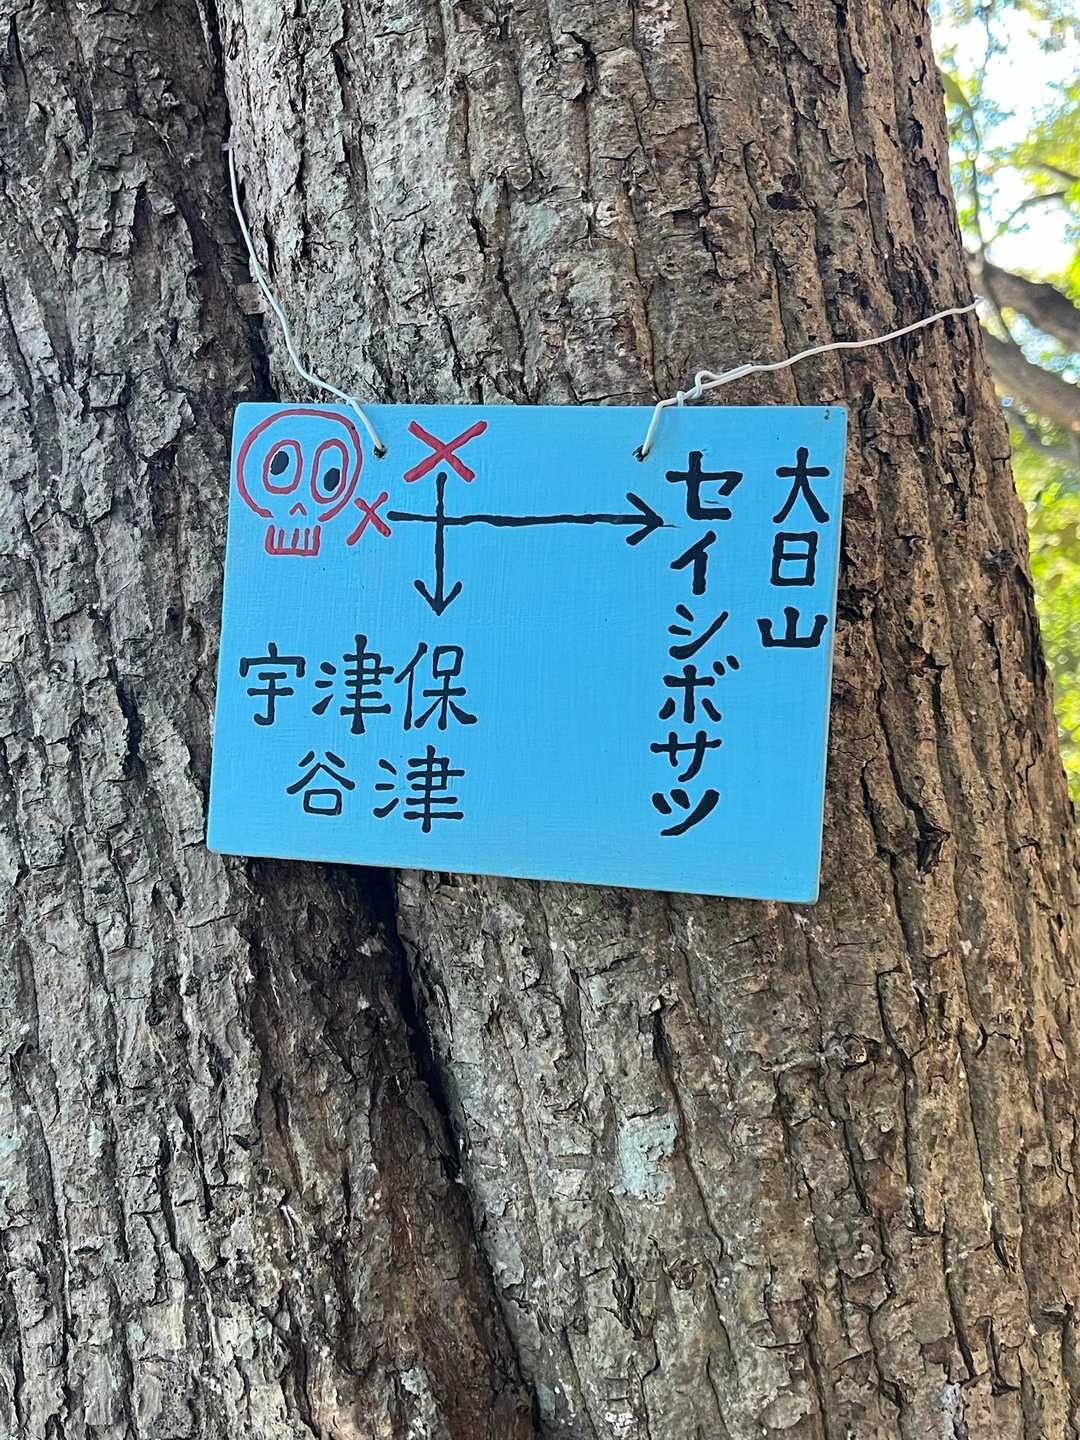 大日山
セイシボサツ
宇津保
谷津